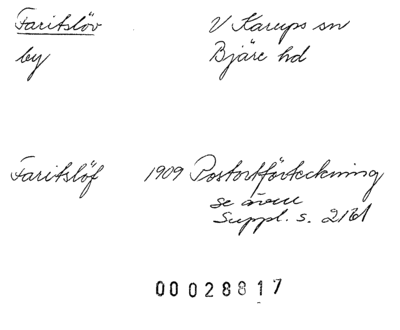 Faritslöv V Karups sn
by Bjäre hd
Faritslöf 1909 Postortförteckning
se även
Suppl. s. 
00 028817